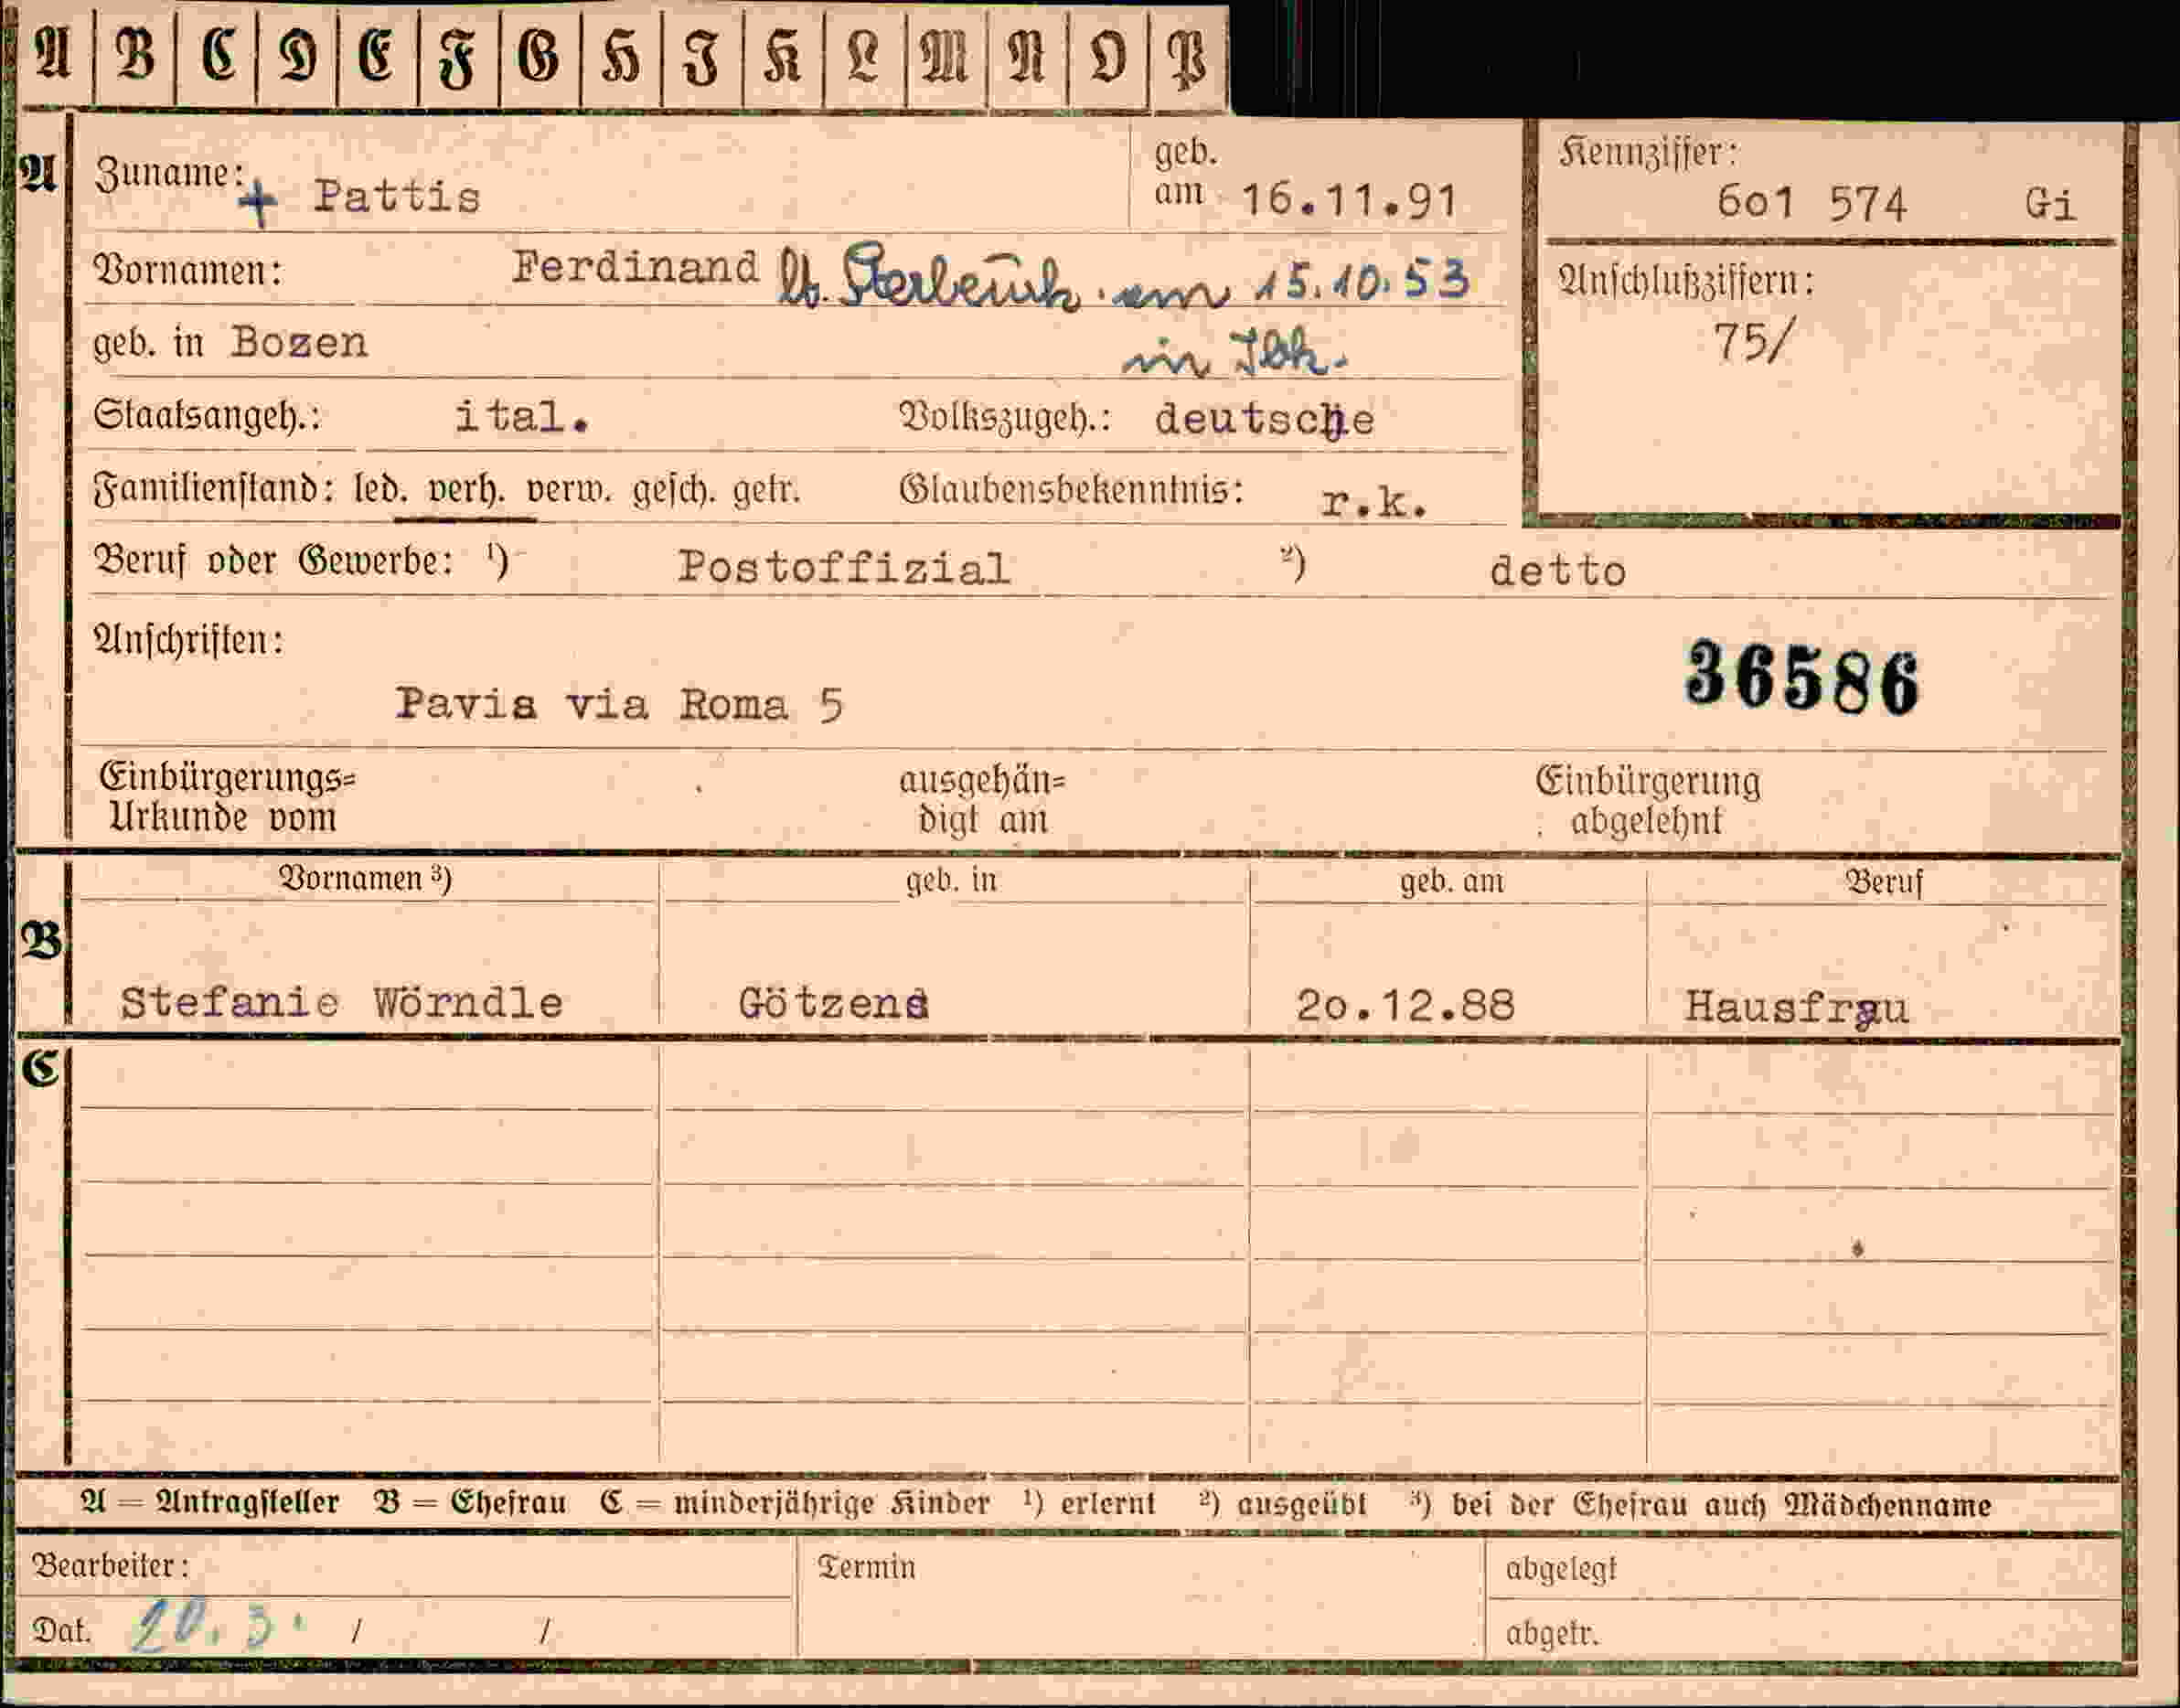 A B C D E F G H I K L M N O P
A Zuname: + Pattis geb. am 16.11.91 Kennziffer: 6o1 574 Gi
Vornamen: Ferdinand lt. Sterbeurk. am 15.10.53 Anschlußziffern:
geb. in Bozen in Ibk. 75/
Staatsangeh.: ital. Volkszugeh.: deutsche
Familienstand: led. verh. verw. gesch. getr. Glaubensbekenntnis: r.k.
Beruf oder Gewerbe: ¹) Postoffizial ²) detto
Anschriften:
36586
Pavia via Roma 5
Einbürgerungs= ausgehän= Einbürgerung
Urkunde vom digt am abgelehnt
Vornamen ³) geb. in geb. am Beruf
B
Stefanie Wörndle Götzens 2o.12.88 Hausfrau
C
A = Antragsteller B = Ehefrau C = minderjährige Kinder ¹) erlernt ²) ausgeübt ³) bei der Ehefrau auch Mädchenname
Bearbeiter: Termin abgelegt
Dat. 20.3. / / abgetr.